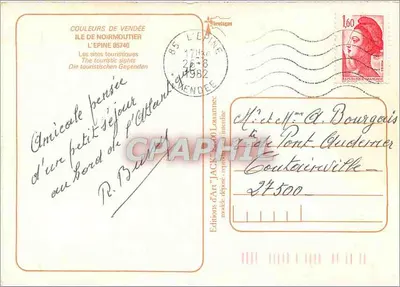 COULEURS DE VENDÉE
ILE DE NOIRMOUTIER
L'EPINE 85740
Les sites touristiques
The touristic sights
Die touristischen Gegenden
Bretagne
85 L'EPINE
1982
VENDEE
1,60
Amicale pensée
d'un petit séjour
au bord de l'Atlantique
R.
Editions d'Art "JACK"
modèle déposé - reproduction interdite
CPAPHIL
Mr et Mme A. Bourgeois
rue de Pont Audemer
Toutainville
27500